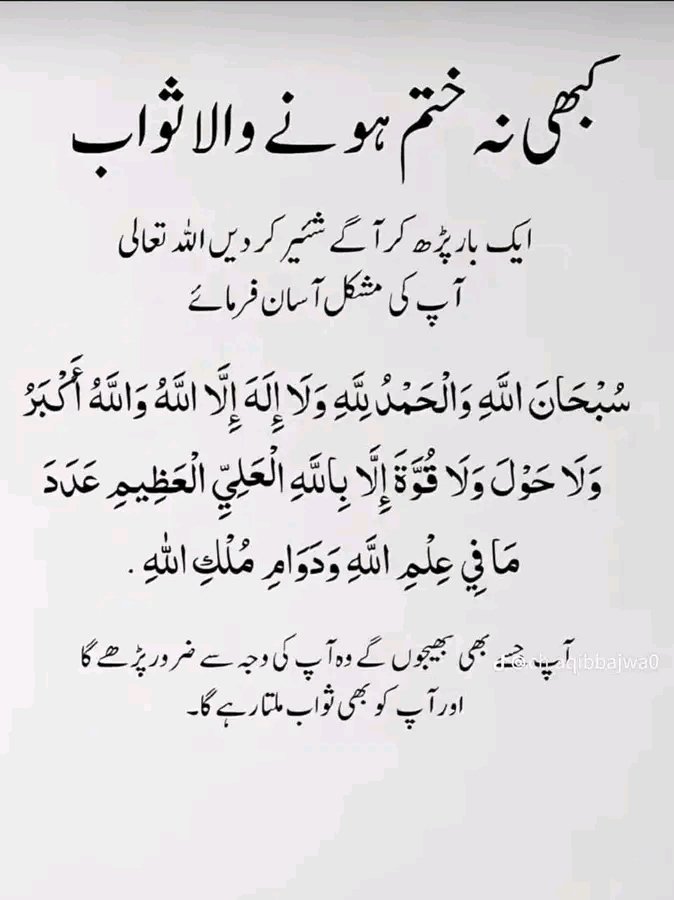 کبھی نہ ختم ہونے والا ثواب
ایک بار پڑھ کر آگے شئیر کر دیں اللہ تعالی
آپ کی مشکل آسان فرمائے
سُبْحَانَ اللَّهِ وَالْحَمْدُ لِلَّهِ وَلَا إِلَهَ إِلَّا اللَّهُ وَاللَّهُ أَكْبَرُ
وَلَا حَوْلَ وَلَا قُوَّةَ إِلَّا بِاللَّهِ الْعَلِيِّ الْعَظِيمِ عَدَدَ
مَا فِي عِلْمِ اللَّهِ وَدَوَامِ مُلْكِ اللَّهِ .
آپ جسے بھی بھیجوں گے وہ آپ کی وجہ سے ضرور پڑھے گا
اور آپ کو بھی ثواب ملتا رہے گا۔